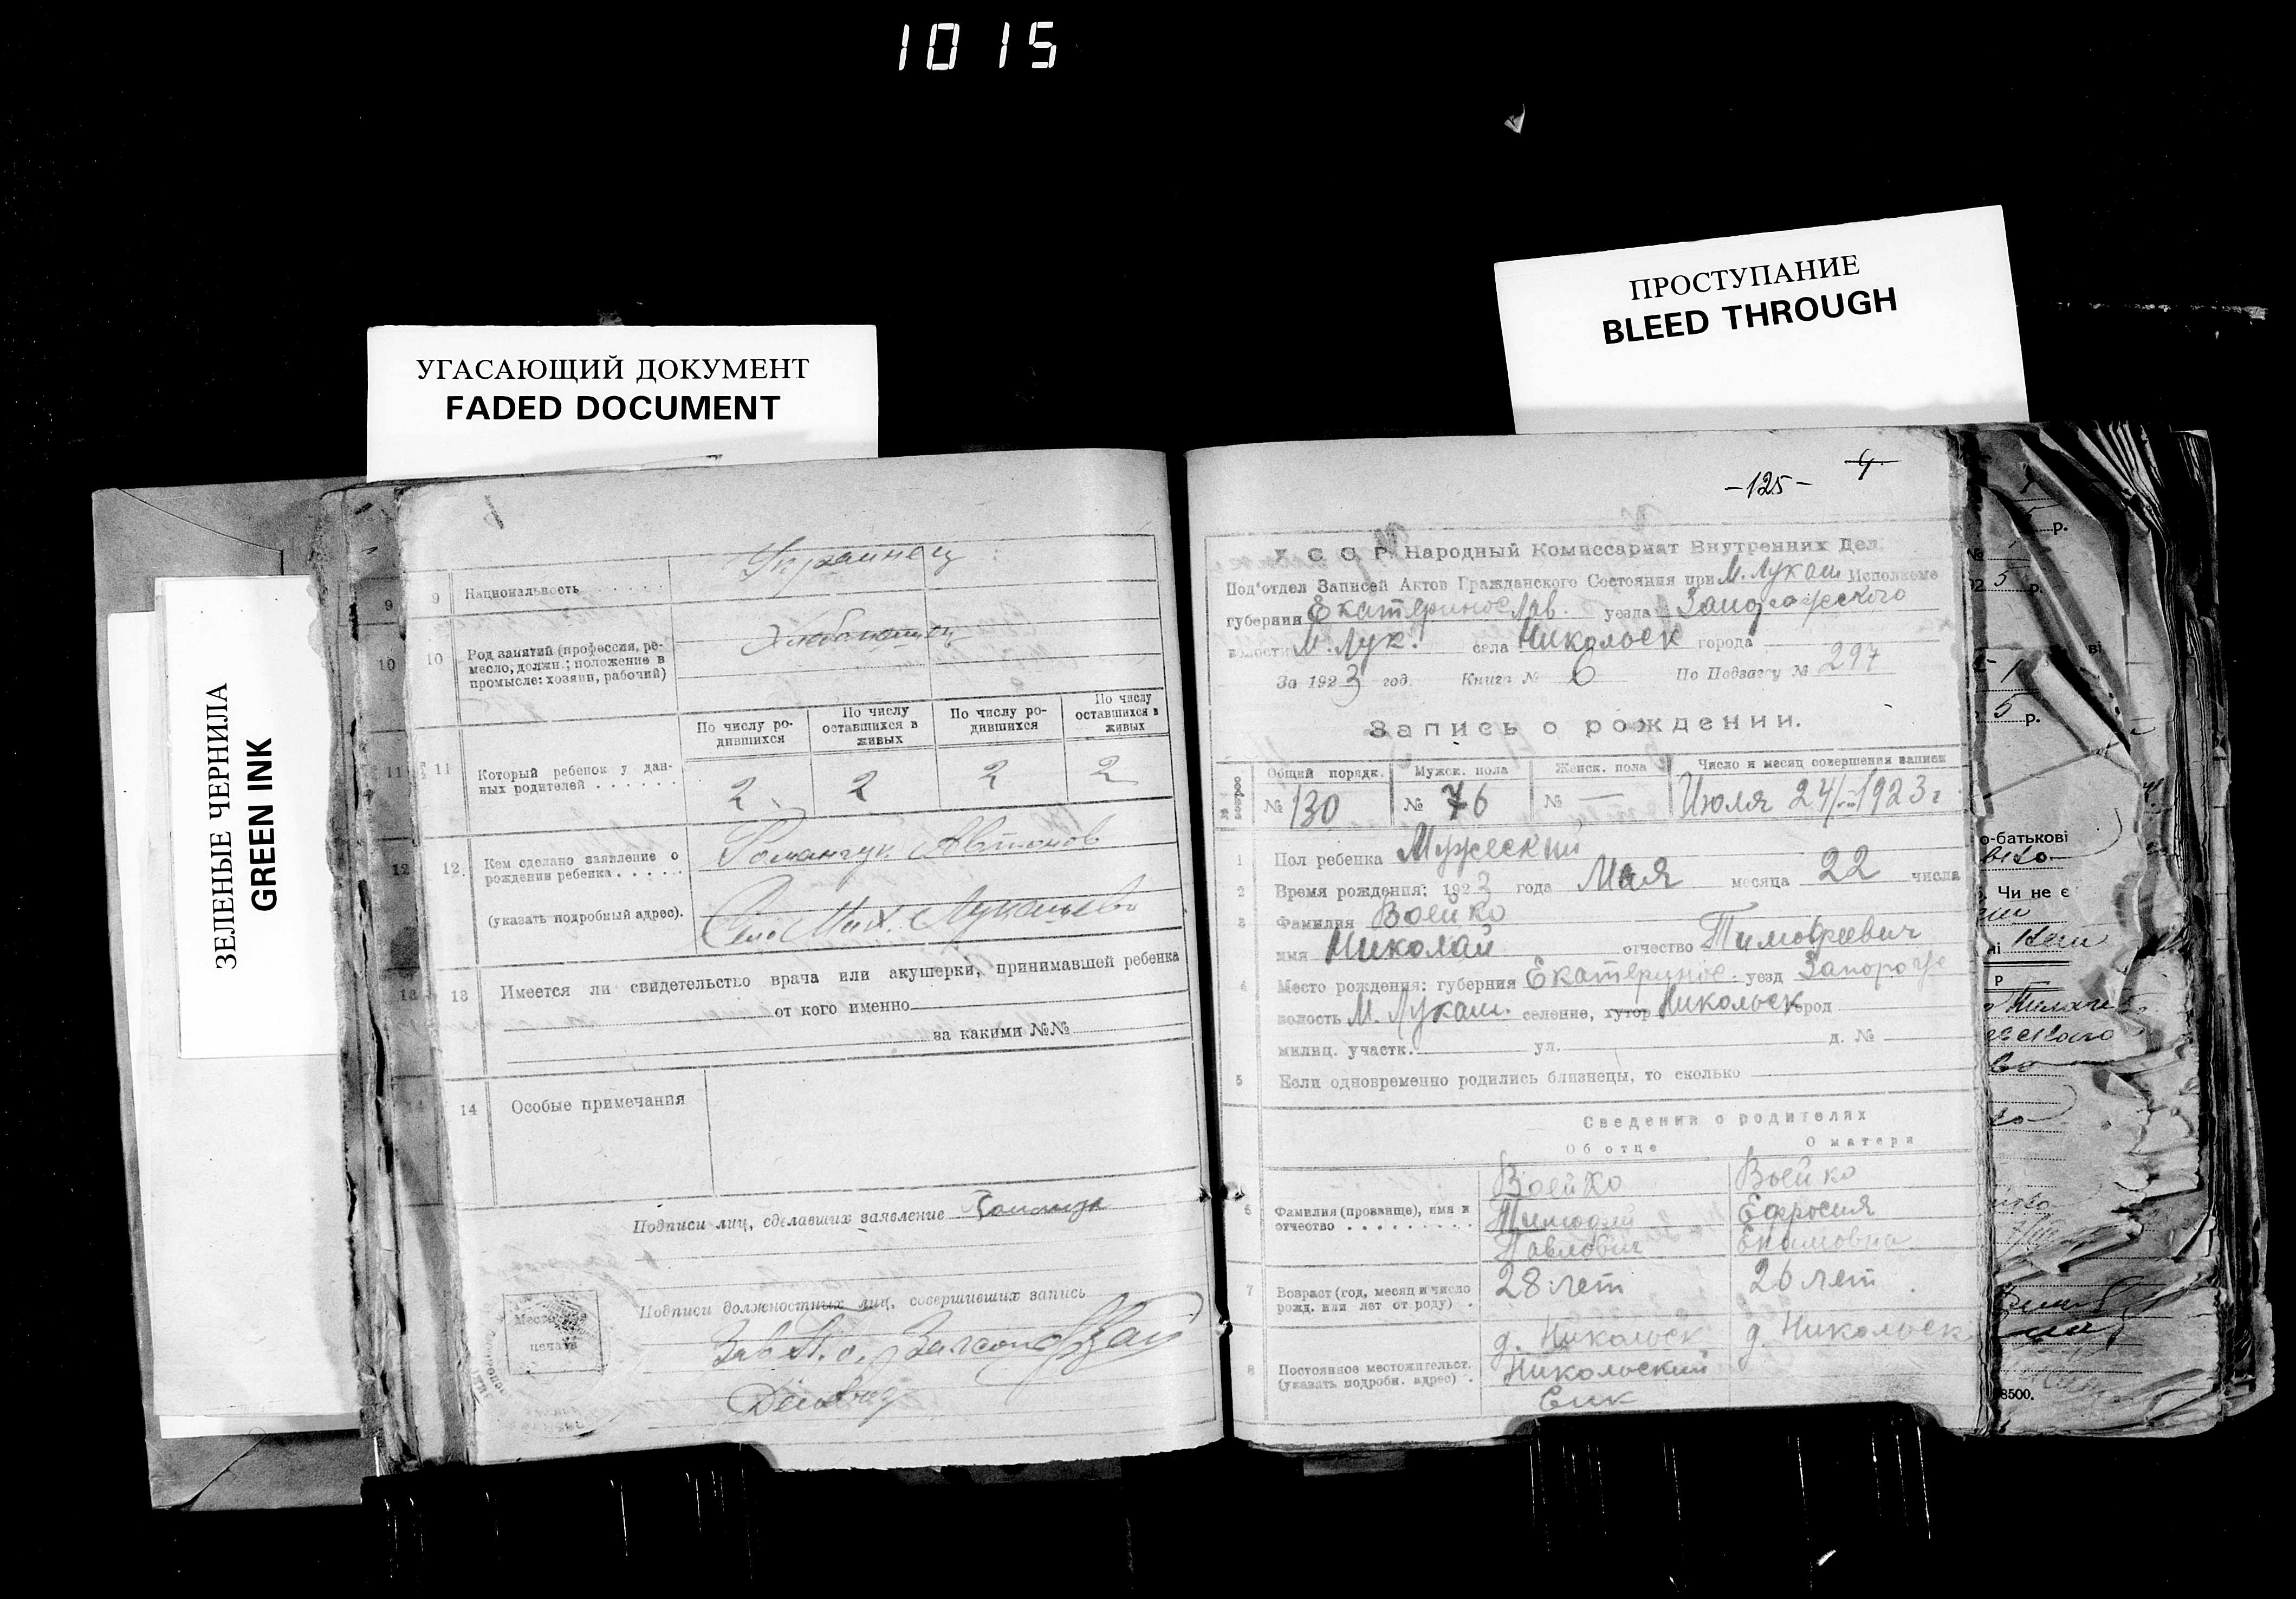 1015
УГАСАЮЩИЙ ДОКУМЕНТ
FADED DOCUMENT
ПРОСТУПАНИЕ
BLEED THROUGH
ЗЕЛЕНЫЕ ЧЕРНИЛА
GREEN INK
9 9 Национальность . . . . . . Украинец
10 10 Род занятий (профессия, ре-
месло, должн.; положение в
промысле: хозяин, рабочий)
Хлебопашец
По числу ро-
дившихся
По числу
оставшихся в
живых
По числу ро-
дившихся
По числу
оставшихся в
живых
11 11 Который ребенок у дан-
ных родителей . . . . . .
2 2 2 2
12 12. Кем сделано заявление о
рождении ребенка . . . . .
Романчук
(указать подробный адрес).
Село Мих. Лукашево
13 13 Имеется ли свидетельство врача или акушерки, принимавшей ребенка
от кого именно
за какими №№
14 14 Особые примечания
Подписи лиц, сделавших заявление
Подписи должностных лиц, совершивших запись
Место
печати
-125-
У С С Р. Народный Комиссариат Внутренних Дел.
Под'отдел Записей Актов Гражданского Состояния при М. Лукаш Исполкоме
губернии Екатеринослав. уезда Запорожского
волости М. Лук. села Никольск города
За 1923 год. Книга № 6 По Подзагсу № 297
Запись о рождении.
Общий порядк. Мужск. пола Женск. пола Число и месяц совершения записи
№ 130 № 76 № — Июля 24/ 1923 г
1 Пол ребенка Мужеский
2 Время рождения: 1923 года Мая месяца 22 числа
3 Фамилия Воейко
имя Николай отчество Тимофеевич
4 Место рождения: губерния Екатеринос. уезд Запорож
волость М. Лукаш. селение, хутор Никольск город
милиц. участк. ул. д. №
5 Если одновременно родились близнецы, то сколько
Сведения о родителях
Об отце О матери
6 Фамилия (прозвище), имя и
отчество . . . . . . . . .
Воейко Воейко
Тимофей Ефросия
Павлович
7 Возраст (год, месяц и число
рожд. или лет от роду) .
28 лет 26 лет
8 Постоянное местожительст.
(указать подробн. адрес) .
д. Никольск д. Никольск
Никольский
р.
5 р.
1
5 р.
о-батькові
Чи не є
8500.